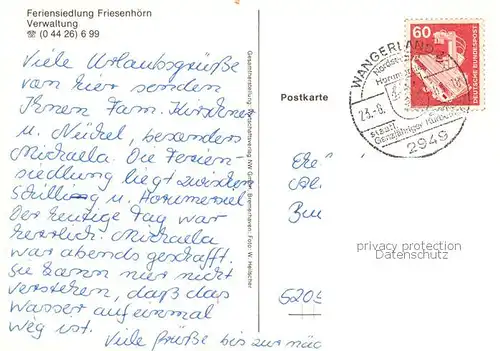 Feriensiedlung Friesenhörn
Verwaltung
☏ (0 44 26) 6 99
Viele Urlaubsgrüße
von hier senden
Ihnen Fam. Kirschner
u. Nickel, besonders
Michaela. Die Ferien-
siedlung liegt zwischen
Schillig u. Horumersiel
Der heutige Tag war
herrlich. Michaela
war abends geschafft.
Sie kann nur nicht
verstehen, daß das
Wasser auf einmal
weg ist.
Viele Grüße bis zur näc
Gesamtherstellung: Wirtschaftsverlag NW GmbH, Bremerhaven. Foto: W. Heilscher
Postkarte
60
DEUTSCHE BUNDESPOST
WANGERLAND
23.-8.
staatl.
2949
privacy protection
Datenschutz